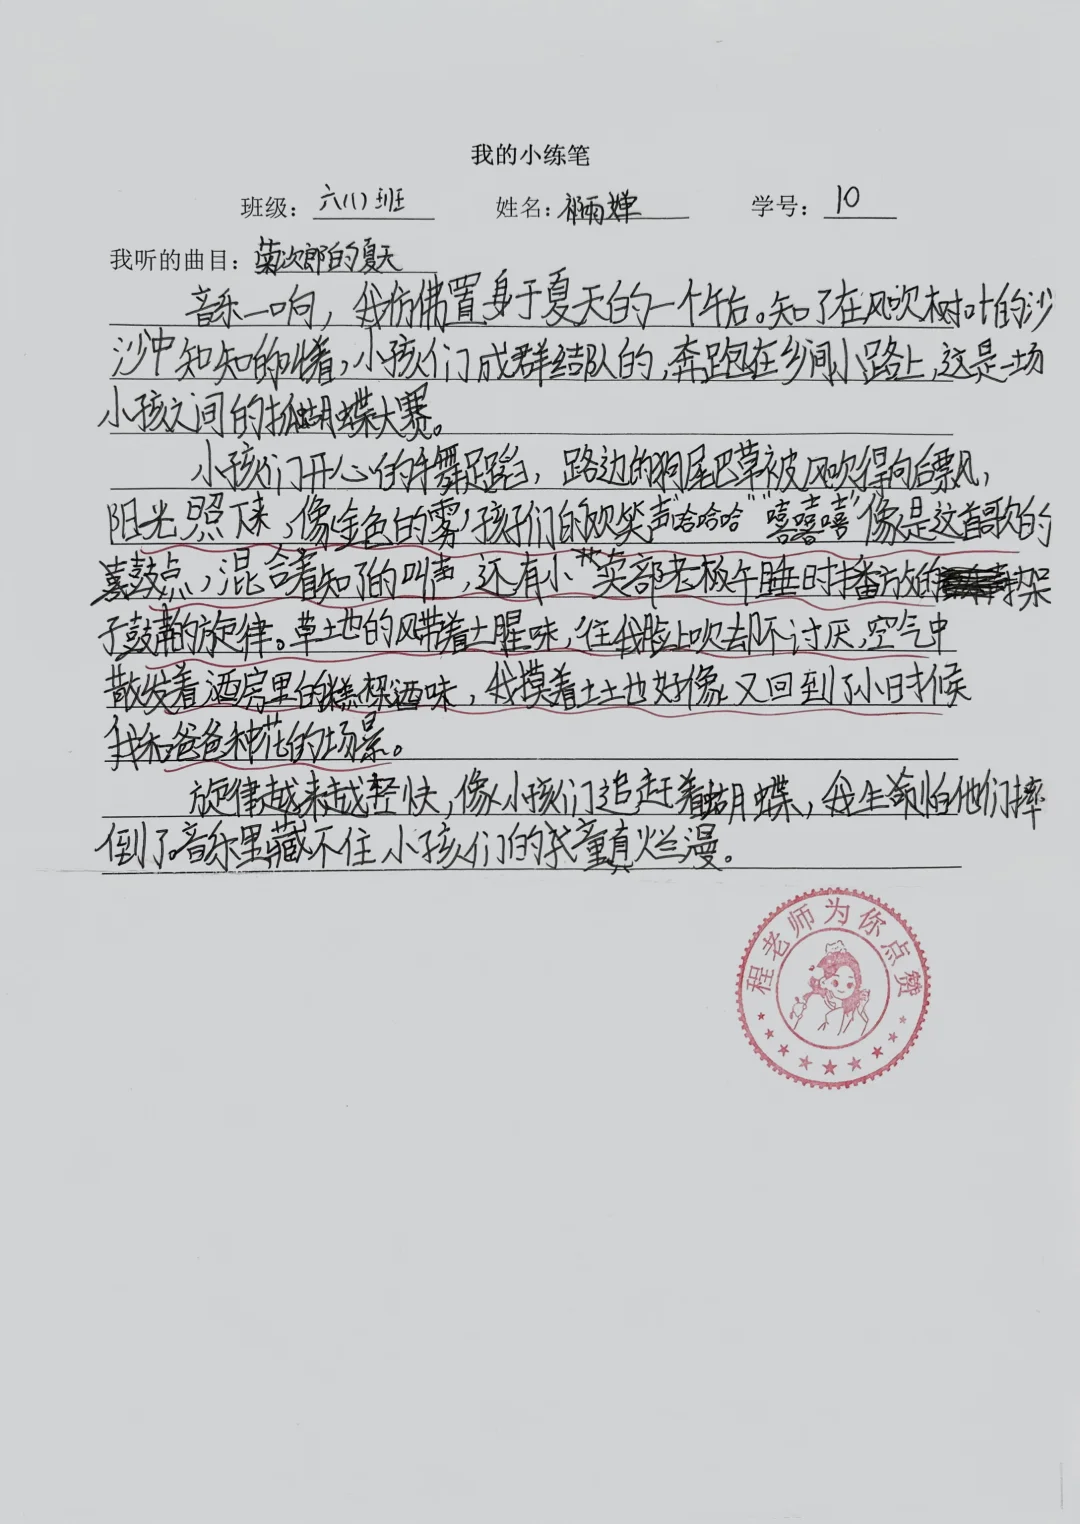 我的小练笔
班级：六(1)班 姓名：雨婵 学号：10
我听的曲目：菊次郎的夏天
音乐一响，我仿佛置身于夏天的一个午后。知了在风吹树叶的沙
沙中知知的叫着，小孩们成群结队的，奔跑在乡间小路上，这是一场
小孩之间的抓蝴蝶大赛。
小孩们开心的手舞足蹈，路边的狗尾巴草被风吹得向后飘，
阳光照下来，像金色的雾，孩子们的欢笑声“哈哈哈”“嘻嘻嘻”像是这首歌的
鼓点，混合着知了的叫声，还有小卖部老板午睡时播放的架
子鼓的旋律。草地的风带着土腥味，往我脸上吹去却不讨厌，空气中
散发着酒房里的糕粿酒味，我摸着土地好像又回到了小时候
我和爸爸种花的场景。
旋律越来越轻快，像小孩们追赶着蝴蝶，我生怕他们摔
倒了。音乐里藏不住小孩们的天童真烂漫。
程老师为你点赞